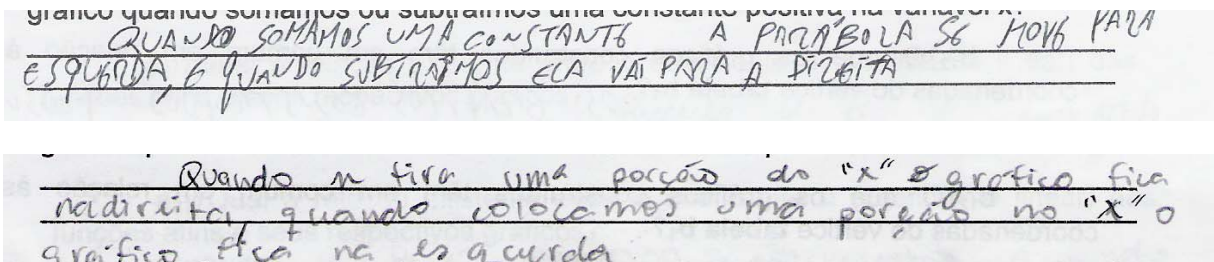 gráfico quando somamos ou subtraímos uma constante positiva na variável x.
QUANDO SOMAMOS UMA CONSTANTE A PARÁBOLA SE MOVE PARA
ESQUERDA, E QUANDO SUBTRAIMOS ELA VAI PARA A DIREITA
Quando tira uma porção do "x" o gráfico fica
na direita, quando colocamos uma porção no "x" o
gráfico fica na esquerda.